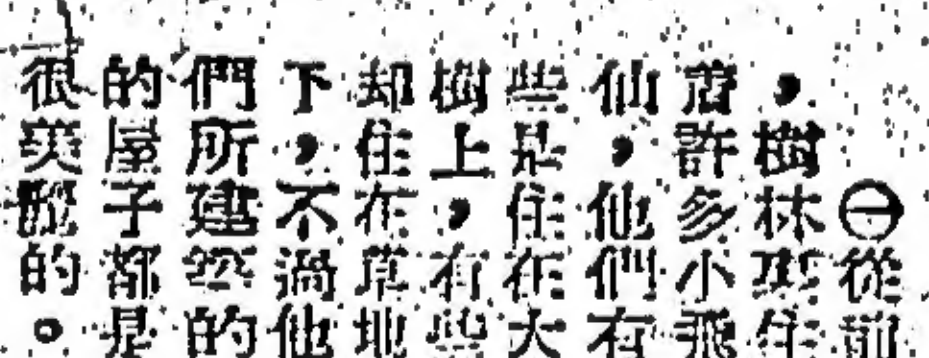 ㊀從前
，樹林裏住
着許多小飛
仙，他們有
些是住在大
樹上，有些
却住在草地
下，不過他
們所建築的
的屋子都是
很美麗的。